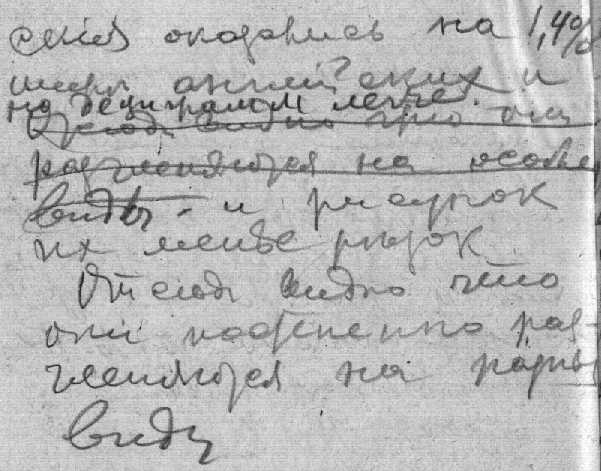 ския оказались на 1,4%
шерл английских и
на децигралом легче.
Отсюда видно что они
расчленяются на особые
виды - и рисунок
их менее резок
Отсюда видно что
они постепенно рас-
членяются на разны
виды